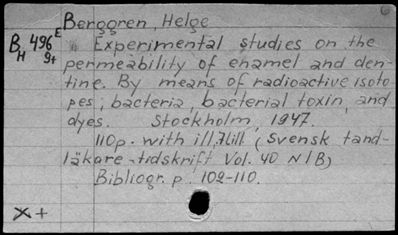 Berggren, Helge
B 496 E
H 9+
Experimental studies on the
permeability of enamel and den-
tine. By means of radioactive isoto
pes, bacteria, bacterial toxin, and
dyes. Stockholm, 1947.
110p. with ill, (Svensk tand-
läkare-tidskrift Vol. 40 N 1B)
Bibliogr. p. 102-110.
X +